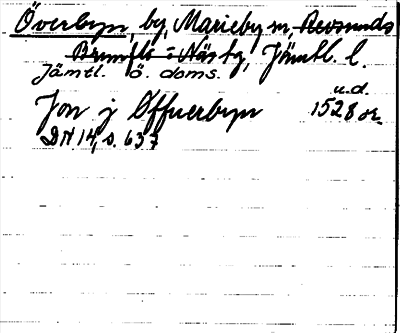 Överbyn, by, Marieby sn, Revsunds
Brunflo - Näs tg, Jämtl. l.
Jämtl. ö. doms.
u.d.
Jon j Øffuerbyn 1528 or.
DN 14, s. 637